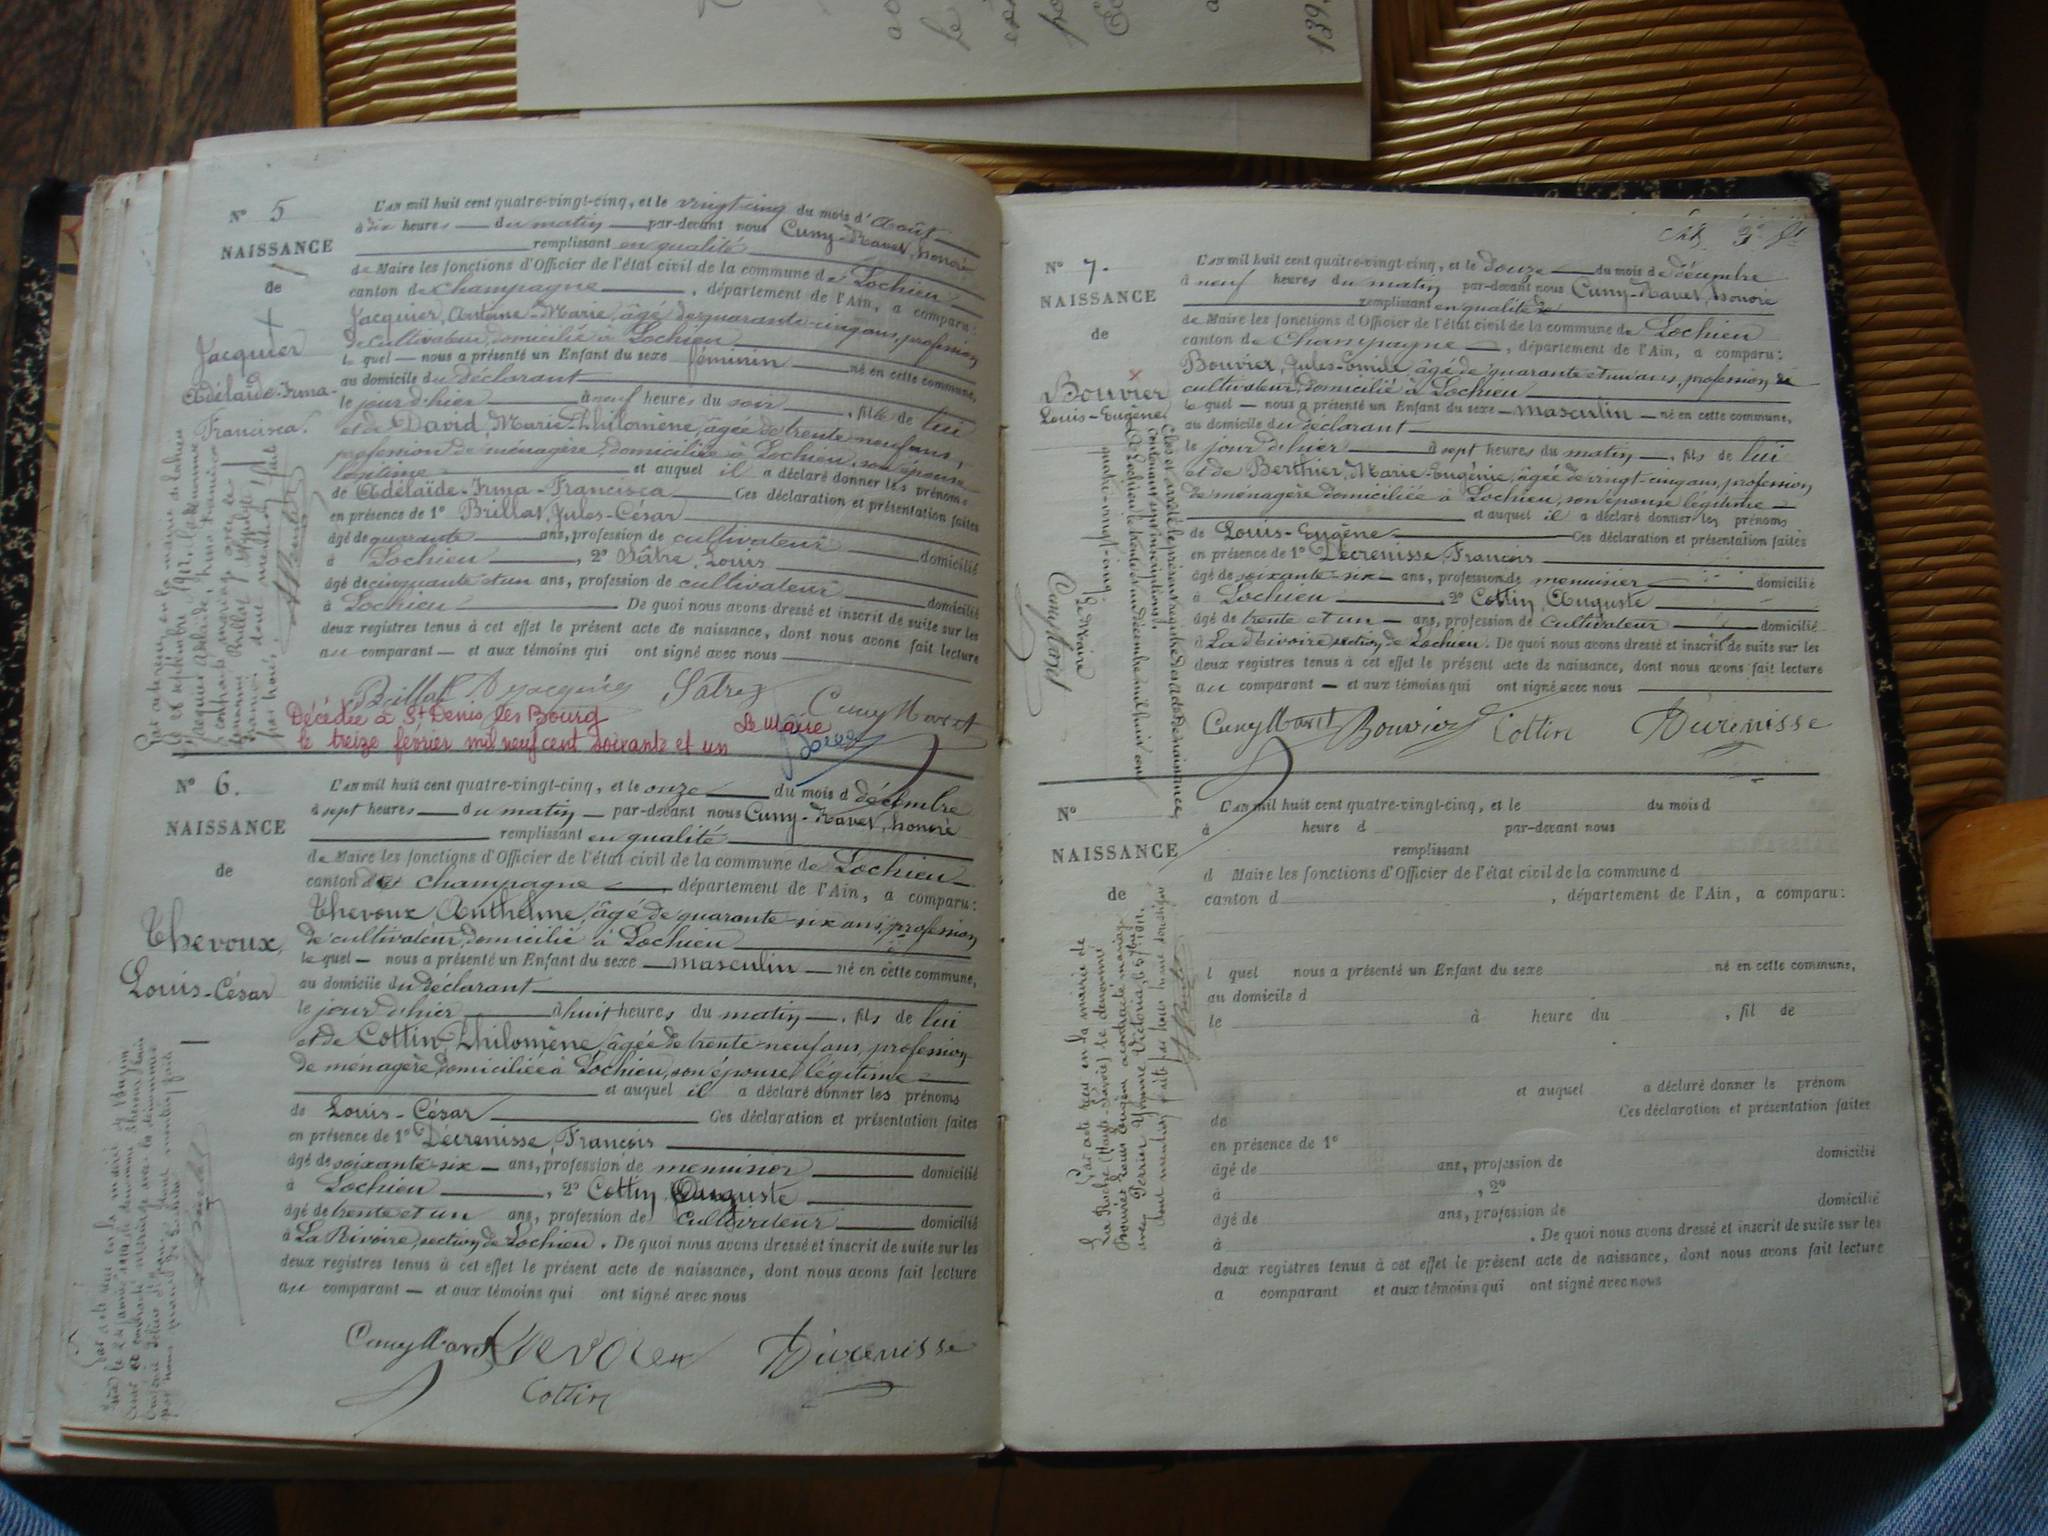 N° 5
NAISSANCE
de
Jacquier
Adélaïde-Irma-
Francisca.
L'AN mil huit cent quatre-vingt-cinq, et le vingt-cinq du mois d'Août
à dix heures du matin par-devant nous Cuny-Ravet, honoré
remplissant en qualité
de Maire les fonctions d'Officier de l'état civil de la commune de Lochieu
canton de Champagne, département de l'Ain, a comparu:
Jacquier, Antoine-Marie, âgé de quarante-cinq ans, profession
de cultivateur, domicilié à Lochieu
lequel nous a présenté un Enfant du sexe féminin né en cette commune,
au domicile du déclarant
le jour d'hier à neuf heures du soir, fille de lui
et de David, Marie-Philomène, âgée de trente-neuf ans,
profession de ménagère, domiciliée à Lochieu, son épouse
légitime et auquel il a déclaré donner les prénoms
de Adélaïde-Irma-Francisca Ces déclaration et présentation faites
en présence de 1° Brillat, Jules-César
âgé de quarante ans, profession de cultivateur
à Lochieu, 2° Louis domicilié
âgé de cinquante et un ans, profession de cultivateur
à Lochieu De quoi nous avons dressé et inscrit de suite sur les domicilié
deux registres tenus à cet effet le présent acte de naissance, dont nous avons fait lecture
au comparant et aux témoins qui ont signé avec nous
Brillat Jacquier Cuny Ravet
Décédée à St Denis les Bourg
le treize février mil neuf cent soixante et un
Le Maire
N° 6.
NAISSANCE
de
Thevoux,
Louis-César
L'AN mil huit cent quatre-vingt-cinq, et le onze du mois d décembre
à sept heures du matin par-devant nous Cuny-Ravet, honoré
remplissant en qualité
de Maire les fonctions d'Officier de l'état civil de la commune de Lochieu
canton de Champagne, département de l'Ain, a comparu:
Thevoux, Anthelme, âgé de quarante-six ans, profession
de cultivateur, domicilié à Lochieu
lequel nous a présenté un Enfant du sexe masculin né en cette commune,
au domicile du déclarant
le jour d'hier à huit heures du matin, fils de lui
et de Cottin, Philomène, âgée de trente-neuf ans, profession
de ménagère, domiciliée à Lochieu, son épouse légitime
et auquel il a déclaré donner les prénoms
de Louis-César Ces déclaration et présentation faites
en présence de 1° Décrenisse, François
âgé de soixante-six ans, profession de menuisier domicilié
à Lochieu, 2° Cottin, Auguste
âgé de trente et un ans, profession de Cultivateur domicilié
à La Rivoire, section de Lochieu. De quoi nous avons dressé et inscrit de suite sur les
deux registres tenus à cet effet le présent acte de naissance, dont nous avons fait lecture
au comparant et aux témoins qui ont signé avec nous
Cuny Ravet Décrenisse
Cottin
N° 7.
NAISSANCE
de
Bouvier
Louis-Eugène
L'AN mil huit cent quatre-vingt-cinq, et le douze du mois de décembre
à neuf heures du matin par-devant nous Cuny-Ravet, honoré
remplissant en qualité
de Maire les fonctions d'Officier de l'état civil de la commune de Lochieu
canton de Champagne, département de l'Ain, a comparu:
Bouvier, Jules-Emile âgé de quarante et un ans, profession de
cultivateur, domicilié à Lochieu
lequel nous a présenté un Enfant du sexe masculin né en cette commune,
au domicile du déclarant
le jour d'hier à sept heures du matin, fils de lui
et de Berthier, Marie-Eugénie, âgée de vingt-cinq ans, profession
de ménagère domiciliée à Lochieu, son épouse légitime
et auquel il a déclaré donner les prénoms
de Louis-Eugène Ces déclaration et présentation faites
en présence de 1° Décrenisse, François
âgé de soixante-six ans, profession de menuisier domicilié
à Lochieu, 2° Cottin, Auguste
âgé de trente et un ans, profession de Cultivateur domicilié
à La Rivoire, section de Lochieu. De quoi nous avons dressé et inscrit de suite sur les
deux registres tenus à cet effet le présent acte de naissance, dont nous avons fait lecture
au comparant et aux témoins qui ont signé avec nous
Cuny Ravet Bouvier Cottin Décrenisse
Clos et arrêté le présent registre des actes de naissance
contenant sept inscriptions.
à Lochieu le trente et un décembre mil huit cent
quatre-vingt-cinq
Le Maire
Cuny Ravet
N°
NAISSANCE
de
L'AN mil huit cent quatre-vingt-cinq, et le du mois d
à heure d par-devant nous
remplissant
d Maire les fonctions d'Officier de l'état civil de la commune d
canton d , département de l'Ain, a comparu:
l quel nous a présenté un Enfant du sexe né en cette commune,
au domicile d
le à heure du , fil de
et auquel a déclaré donner le prénom
de Ces déclaration et présentation faites
en présence de 1°
âgé de ans, profession de domicilié
à , 2°
âgé de ans, profession de domicilié
à . De quoi nous avons dressé et inscrit de suite sur les
deux registres tenus à cet effet le présent acte de naissance, dont nous avons fait lecture
a comparant et aux témoins qui ont signé avec nous